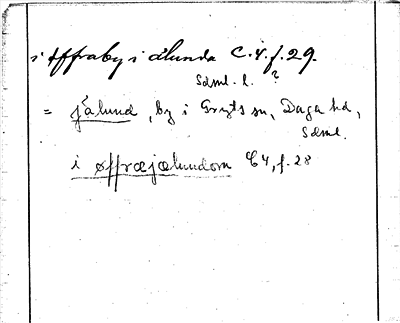 i øffraby i ælunda C.4.f.29.
Sdml. l. ?
= jälund, by i Gryts sn, Daga hd,
Sdml.
i øffræjælundom C4, f. 28